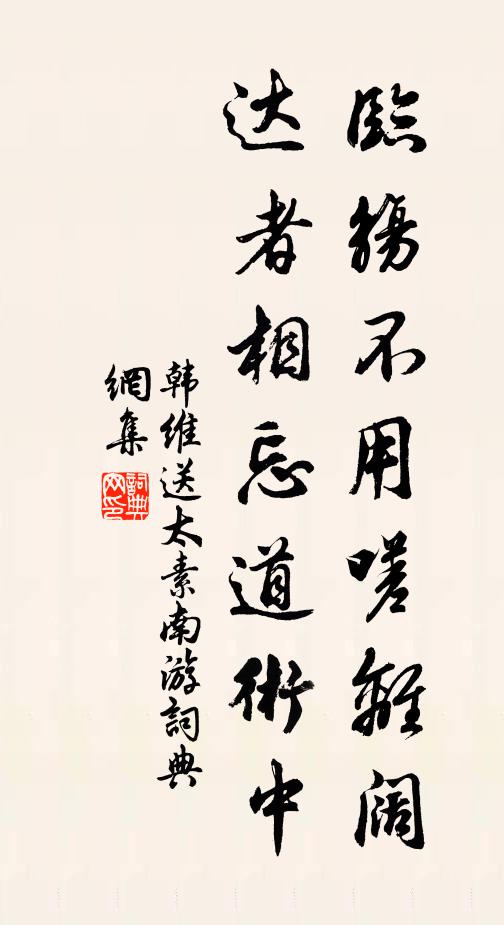 臨觴不用嗟離阔
达者相忘道術中
韩維送太素南游詞典
網集
詞典
网印